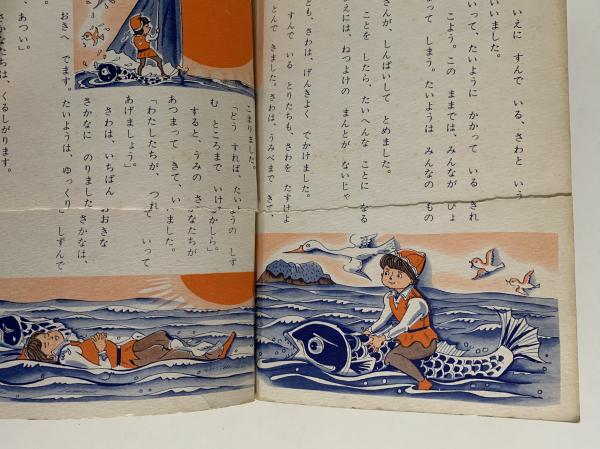 いえに すんで いる、さわと いう
いいました。
いって、たいように かかって いる きれ
こよう。この ままでは、みんなが びょ
なって しまう。たいようは みんなの もの
さんが、しんぱいして とめました。
ことを したら、たいへんな ことに なる
えには、ねつよけの まんとが ないじゃ
とも、さわは、げんきよく でかけました。
すんで いる とりたちも、さわを たすけよ
とんで きました。さわは、うみべまで きて、
こまりました。
「どう すれば、たいようの しず
む ところまで いけ かしら。」
すると、うみの さ かなたちが
あつまって きて、い いました。
「わたしたちが、つれ て いって
あげましょう」
さわは、いちばん おおきな
さかなに のりました。さかなは、
たいようは、ゆっくり しずんで
おきへ でます。
、あつい。」
かなたちは、くるしがります。